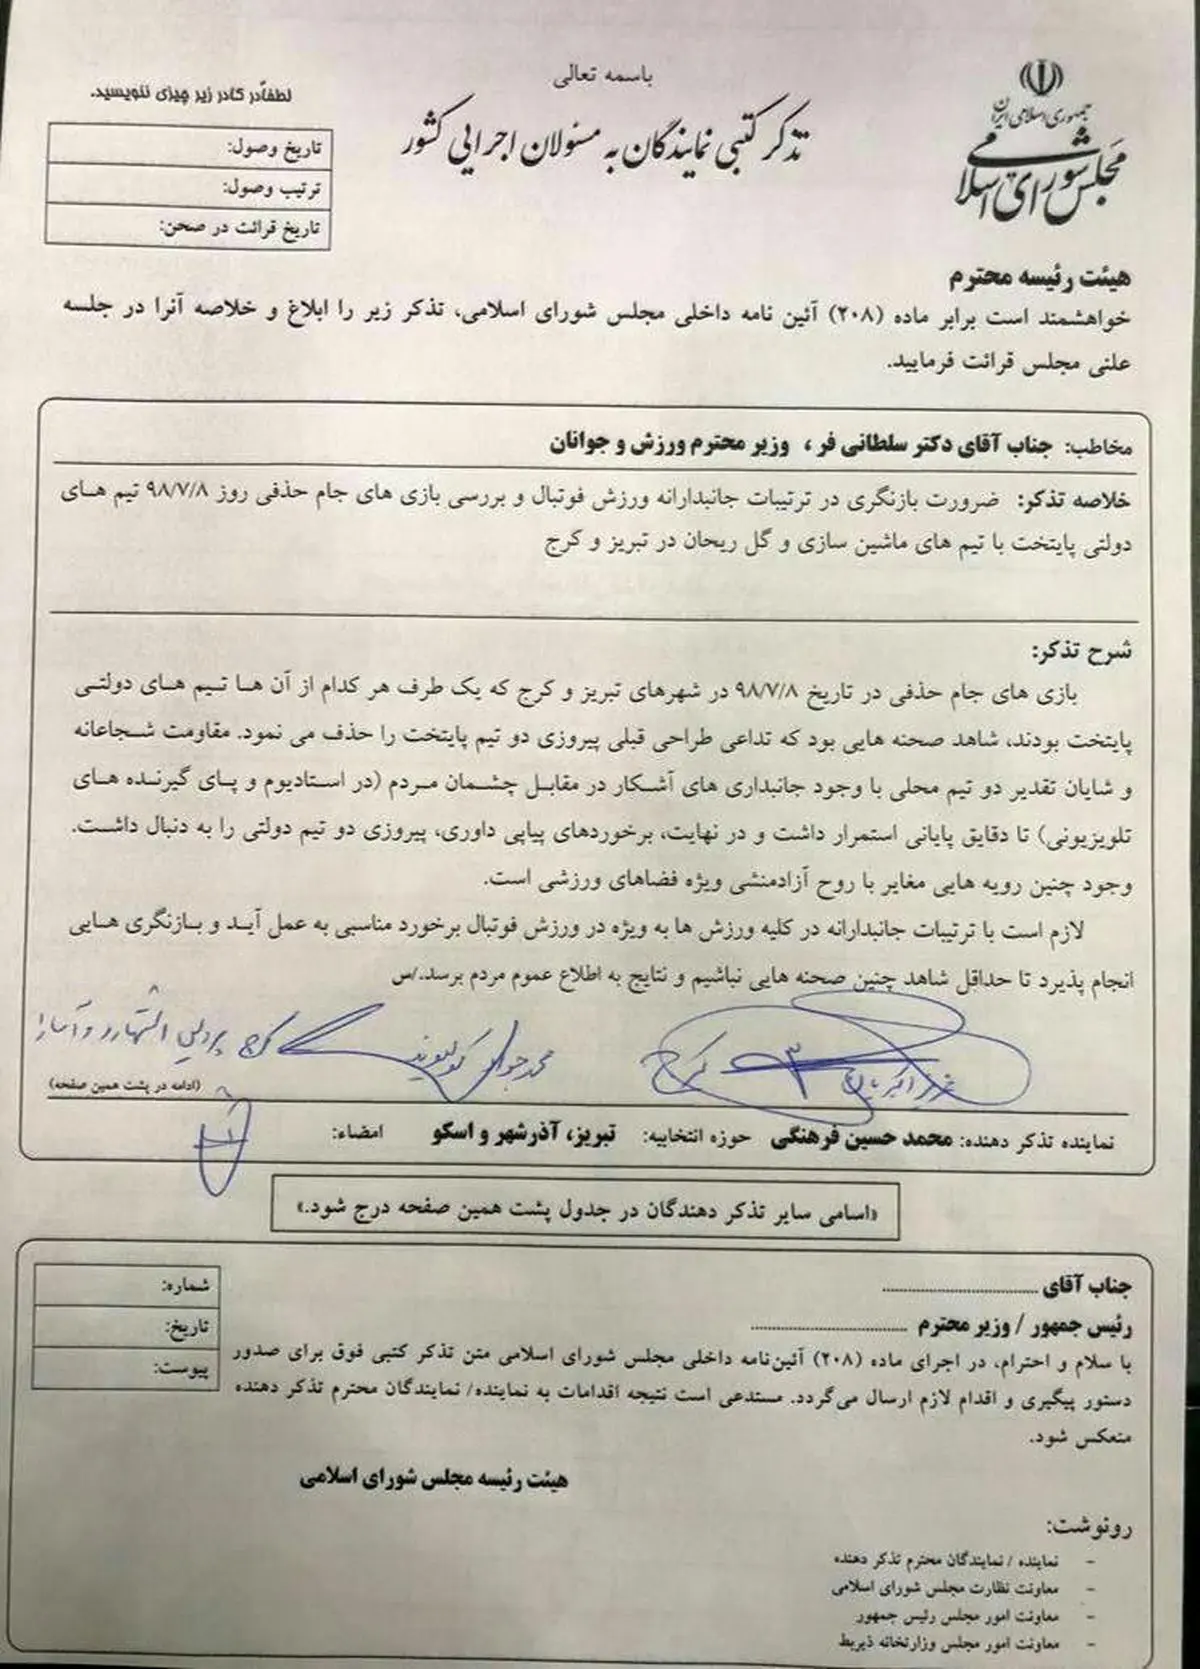 باسمه تعالی
جمهوری اسلامی ایران
مجلس شورای اسلامی
تذکر کتبی نمایندگان به مسئولان اجرایی کشور
لطفاً در کادر زیر چیزی ننویسید.
تاریخ وصول:
ترتیب وصول:
تاریخ قرائت در صحن:
هیئت رئیسه محترم
خواهشمند است برابر ماده (۲۰۸) آئین نامه داخلی مجلس شورای اسلامی، تذکر زیر را ابلاغ و خلاصه آنرا در جلسه
علنی مجلس قرائت فرمایید.
مخاطب: جناب آقای دکتر سلطانی فر ، وزیر محترم ورزش و جوانان
خلاصه تذکر: ضرورت بازنگری در ترتیبات جانبدارانه ورزش فوتبال و بررسی بازی های جام حذفی روز ۹۸/۷/۸ تیم های
دولتی پایتخت با تیم های ماشین سازی و گل ریحان در تبریز و کرج
شرح تذکر:
بازی های جام حذفی در تاریخ ۹۸/۷/۸ در شهرهای تبریز و کرج که یک طرف هر کدام از آن ها تیم های دولتی
پایتخت بودند، شاهد صحنه هایی بود که تداعی طراحی قبلی پیروزی دو تیم پایتخت را حذف می نمود. مقاومت شجاعانه
و شایان تقدیر دو تیم محلی با وجود جانبداری های آشکار در مقابل چشمان مردم (در استادیوم و پای گیرنده های
تلویزیونی) تا دقایق پایانی استمرار داشت و در نهایت، برخوردهای پیاپی داوری، پیروزی دو تیم دولتی را به دنبال داشت.
وجود چنین رویه هایی مغایر با روح آزادمنشی ویژه فضاهای ورزشی است.
لازم است با ترتیبات جانبدارانه در کلیه ورزش ها به ویژه در ورزش فوتبال برخورد مناسبی به عمل آید و بازنگری هایی
انجام پذیرد تا حداقل شاهد چنین صحنه هایی نباشیم و نتایج به اطلاع عموم مردم برسد./س
عزیز اکبریان کرج
محمدجواد کولیوند کرج فردیس اشتهارد و آسارا
(ادامه در پشت همین صفحه)
نماینده تذکر دهنده: محمد حسین فرهنگی حوزه انتخابیه: تبریز، آذرشهر و اسکو امضاء:
«اسامی سایر تذکر دهندگان در جدول پشت همین صفحه درج شود.»
جناب آقای ........................
رئیس جمهور / وزیر محترم ........................
شماره:
تاریخ:
پیوست:
با سلام و احترام، در اجرای ماده (۲۰۸) آئین‌نامه داخلی مجلس شورای اسلامی متن تذکر کتبی فوق برای صدور
دستور پیگیری و اقدام لازم ارسال می‌گردد. مستدعی است نتیجه اقدامات به نماینده/ نمایندگان محترم تذکر دهنده
منعکس شود.
هیئت رئیسه مجلس شورای اسلامی
رونوشت:
- نماینده / نمایندگان محترم تذکر دهنده
- معاونت نظارت مجلس شورای اسلامی
- معاونت امور مجلس رئیس جمهور
- معاونت امور مجلس وزارتخانه ذیربط